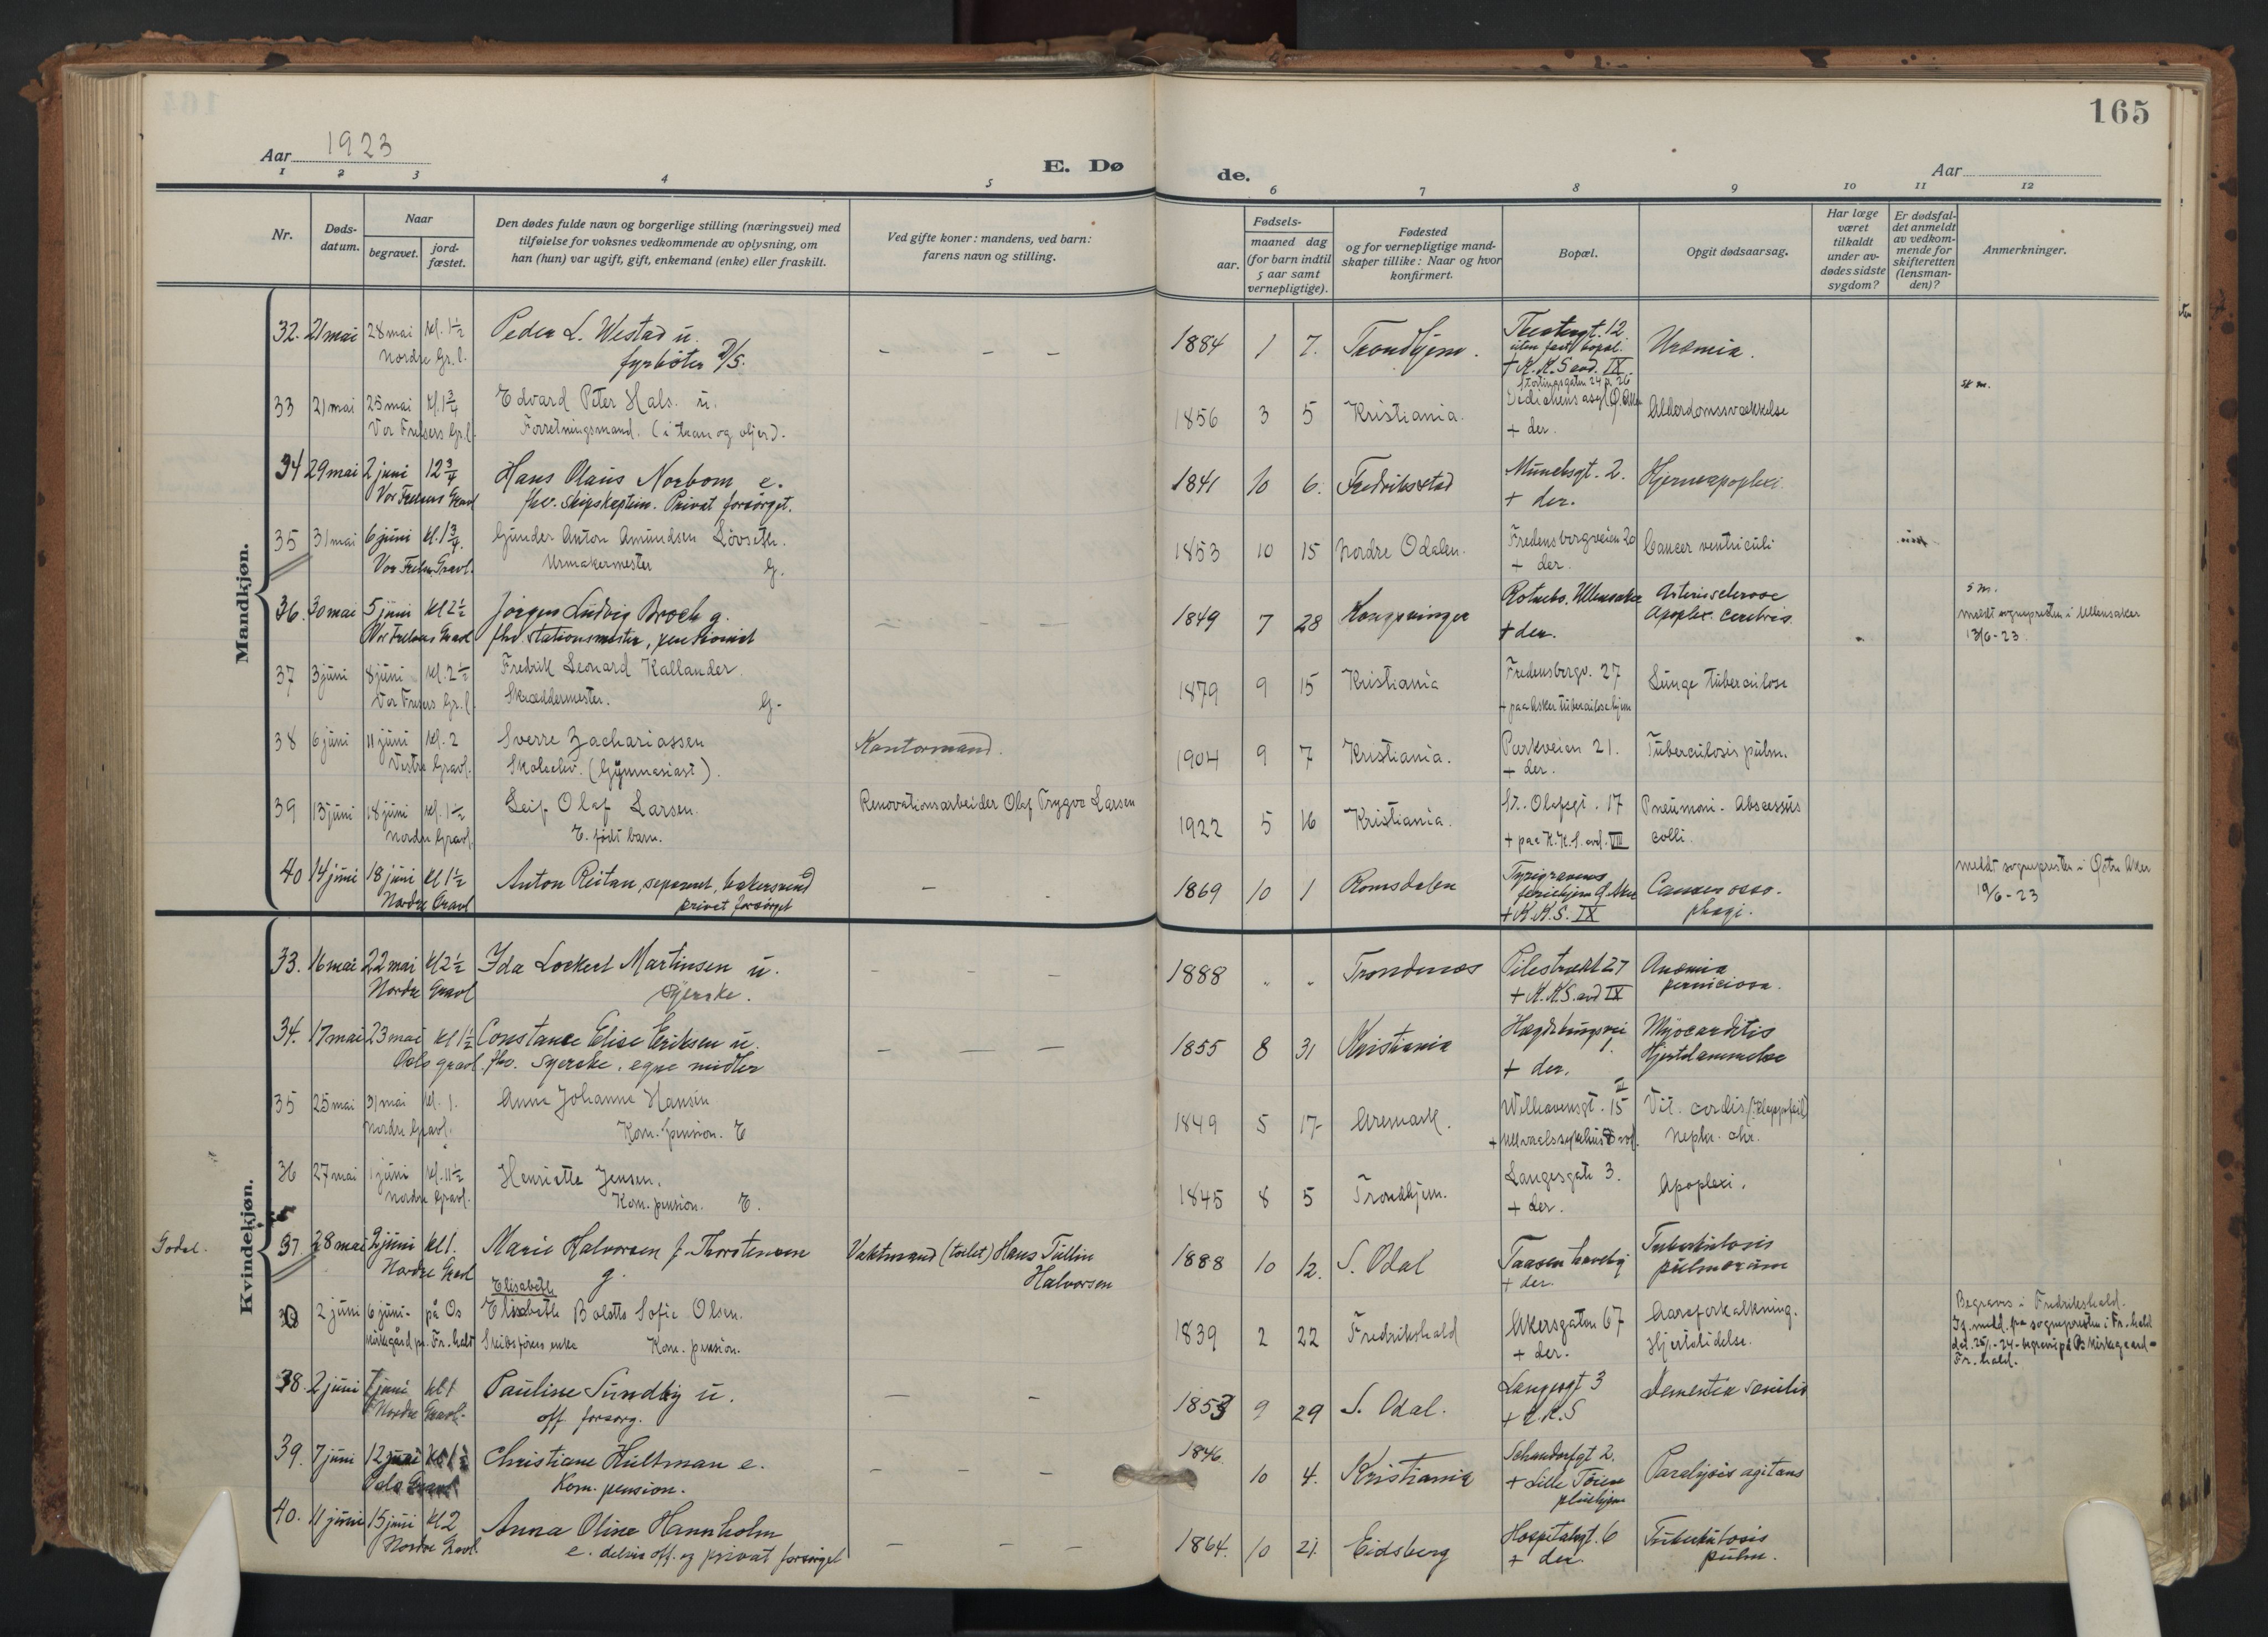 165
Aar 1923
E. Dø
de.
Aar
1 2 3 4 5 6 7 8 9 10 11 12
Nr.
Døds-
datum.
Naar
begravet.
jord-
fæstet.
Den dødes fulde navn og borgerlige stilling (næringsvei) med
tilføielse for voksnes vedkommende av oplysning, om
han (hun) var ugift, gift, enkemand (enke) eller fraskilt.
Ved gifte koner: mandens, ved barn:
farens navn og stilling.
Fødsels-
aar.
maaned dag
(for barn indtil
5 aar samt
vernepligtige).
Fødested
og for vernepligtige mand-
skaper tillike: Naar og hvor
konfirmert.
Bopæl.
Opgit dødsaarsag.
Har læge
været
tilkaldt
under av-
dødes sidste
sygdom?
Er dødsfal-
det anmeldt
av vedkom-
mende for
skifteretten
(lensman-
den)?
Anmerkninger.
Mandkjøn.
32. 21 mai 28 mai kl. 1½ Peder L. Westad u. — — — 1884 1 7. Trondhjem. 12 Uræmia.
Nordre Gr.l. fyrbøter D/S. uten fast bopæl.
+ K.K.S avd. IX
Stortingsgaten 24 p. 26
33 21 mai 25 mai kl. 1¾ Edvard Peter Hals. u. 1856 3 5 Kristiania. Alderdomssvækkelse
Vor Frelsers Gr.l. Forretningsmand. (i tran og oljer). + der.
34 29 mai 2 juni 12¾ Hans Olaus Norbom e. 1841 10 6. Fredriksstad Munchsgt. 2. Hjerneapoplexi
Vor Frelsers Gravl fhv. skipskaptein. Privat forsørget. + der.
35 31 mai 6 juni kl. 1¾ Gunder Anton Amundsen Løvseth. 1853 10 15 Nordre Odalen. Fredensborgveien 20 Cancer ventriculi
Vor Frelse Gravl. Urmakermester G. + der.
36. 30 mai 5 juni kl 2½ Jørgen Ludvig Broch g. — — — 1849 7 28 Kongsvinger Ullensaker Arteriosclerose 5 m.
Vor Frelsers Gravl fhv. stationsmester, pensionist + der. Apoplex. cerebris. meldt sognepresten i Ullensaker
13/6-23
37 3 juni 8 juni kl. 2½ Fredrik Leonard Kallander 1879 9 15 Kristiania Fredensborgv. 27 Lunge tuberculose
Vor Frelsers Gr.l. Skræddermester. G. + paa Asker tuberculosehjem
38 6 juni 11 juni kl. 2 Sverre Zachariassen Kontormand. 1904 9 7 Kristiania. Parkveien 21. Tuberculosis pulm.
Vestre Gravl. Skoleelev. (Gymnasiast). + der.
39 13 juni 18 juni kl. 1½ Leif Olaf Larsen. Renovationsarbeider Olaf Trygve Larsen 1922 5 16 Kristiania. St. Olafsgt. 17 Pneumoni - Abscessus
Nordre Gravl. E. født barn. + paa K.K.S. avd. VIII colli.
40 14 juni 18 juni kl 1½ Anton Reitan, separert, bakersvend — 1869 10 1 Romsdalen Tyrigravens Cancer oeso- meldt sognepresten i Østre Aker
Nordre Gravl privat forsørget feriehjem Ø. Aker phagi. 19/6-23
+ K.K.S. IX
Kvindekjøn.
33. 16 mai 22 mai kl 2½ Ida Lockert Martinsen u. — — — 1888 " " Trondenes Pilestrædet 27 Anæmia
Nordre Gravl syerske. + K.K.S. avd IX perniciosa.
34. 17 mai 23 mai kl 1½ Constance Elise Eriksen u. — — — 1855 8 31 Kristiania Hægdehaugsvei Myocarditis
Oslo gravl. fhv. syerske. egne midler 1. Hjertelammelse
+ der.
35 25 mai 31 mai kl. 1. Anna Johanne Hansen 1849 5 17 Aremark. Welhavensgt. 15 III Vit. cordis (Klappefeil)
Nordre Gravl. Kom. pension. E + Ullevaalssykehus 8 avd. Nephr. chr.
36 27 mai 1 juni kl. 11½ Henriette Jensen. 1845 8 5 Trondhjem. Langesgate 3. Apoplexi.
Nordre Gravl. Kom. pension. E. + der.
Godal. 37. 28 mai 2 juni kl 1. Marie Halvorsen f. Thorstensen Vaktmand (toilet) Hans Tullin 1888 10 12. S. Odal Taasen haveby Tuberkulosis
Nordre Gravl g. Halvorsen + der. pulmorum
Elisabeth
2 juni 6 juni - på Os Elisabeth Bolette Sofie Olsen. 1839 2 22 Fredrikshald Akersgaten 67 Aareforkalkning. Begraves i Fredrikshald.
kirkegård pr. Fr. hald Skibsførers enke Kom. pension. + der. Hjertelidelse. Iq. meld. fra sognepresten i Fr. hald
dat. 25/1-24 - begravet på Os kirkegaard -
Fr. hald.
38. 2 juni 7 juni kl 1 Pauline Sundby u. — — 1853 9 29 S. Odal. Langesgt 3 Dementia senilis
Nordre Gravl. off. forsørg. + K.K.S
39. 7 juni 12 juni kl 1½ Christiane Hultman e. — — — 1846. 10 4. Kristiania Schandorfgt 2. Paralysis agitans
Oslo Gravl Kom. pension. + Lille Tøien
pleiehjem
40. 11 juni 15 juni kl 2 Anna Oline Hannholm — — — 1864. 10 21. Eidsberg Hospitalsgt. 6 Tuberkulosis
Nordre Gravl. e. delvis off. og privat forsørget + der. pulm.